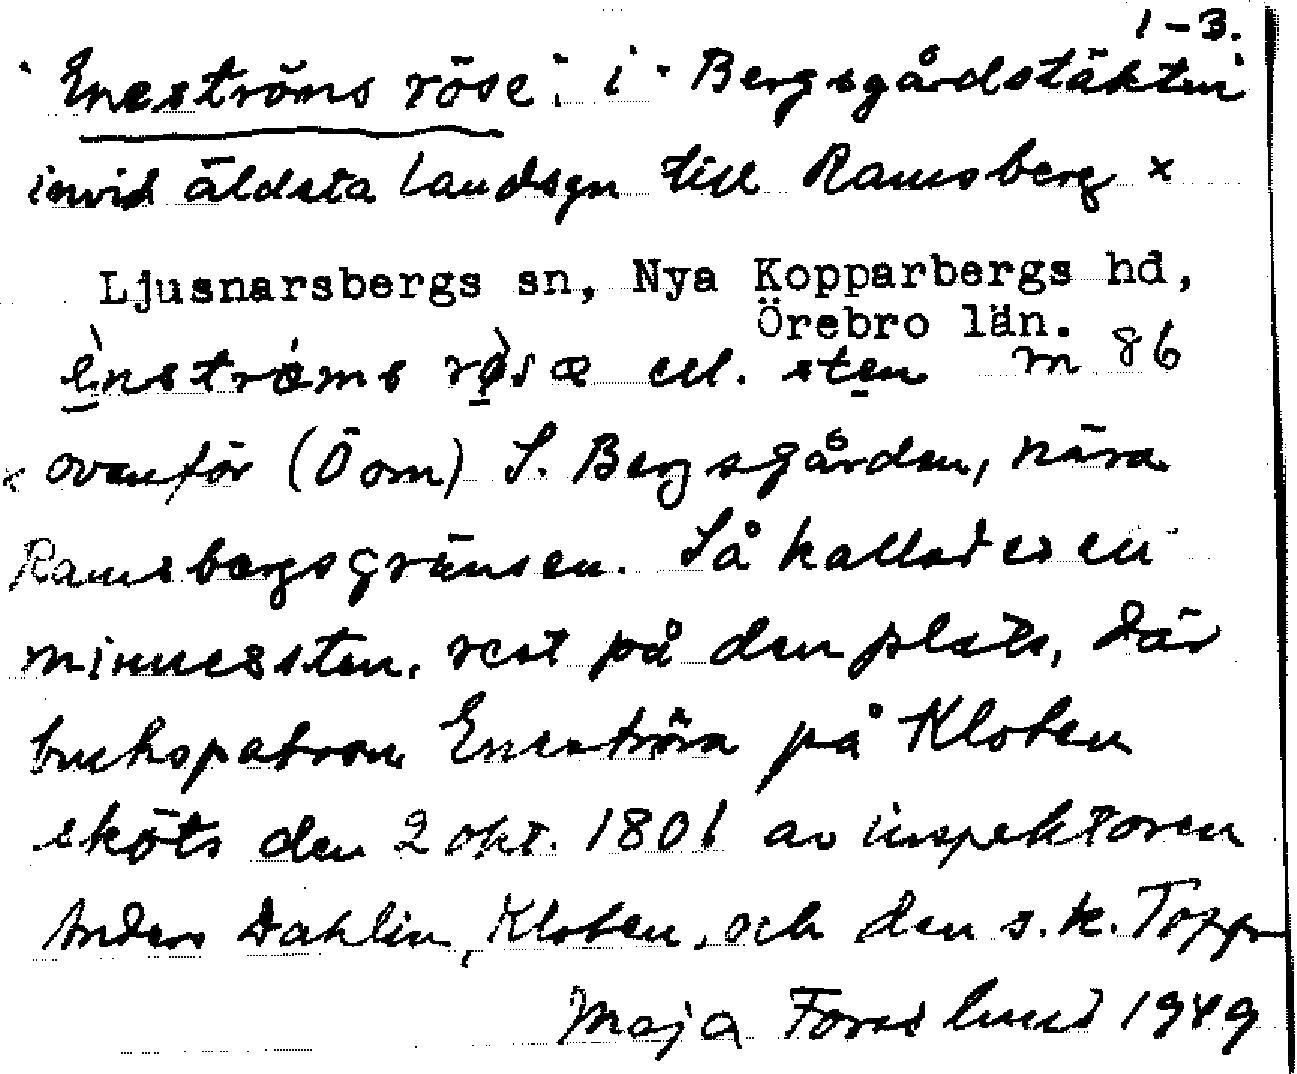 1-3.
"Eneströms röse" i "Bergsgårdstäkten"
invid äldsta landsvn till Ramsberg x
Ljusnarsbergs sn, Nya Kopparbergs hd,
Örebro län.
ènströ́ms rø̀sæ el. sten m 86
x ovanför (Ö om) S. Bergsgården, nära
Ramsbergsgränsen. Så kallades en
minnessten, rest på den plats, där
brukspatron Eneström på Kloten
sköts den 2 okt. 1801 av inspektoren
Anders Dahlin, Kloten, och den s.k. Topp-
Maja Forsslund 1949